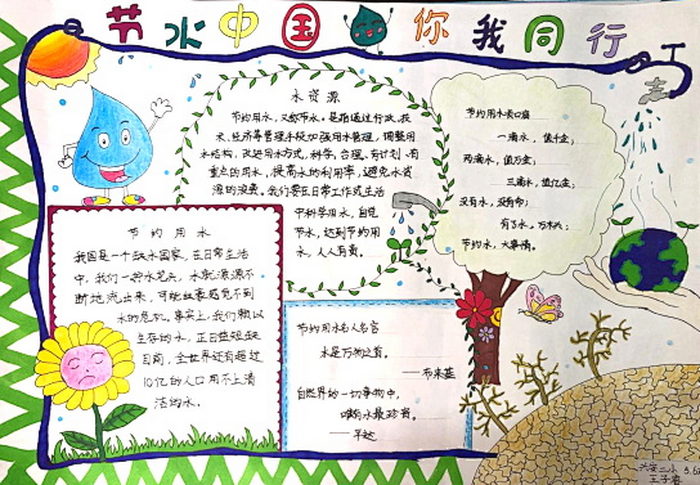 节水中国 你我同行
水资源
节约用水，又称节水。是指通过行政、技
术、经济等管理手段加强用水管理，调整用
水结构，改进用水方式，科学、合理、有计划、有
重点的用水，提高水的利用率，避免水资
源的浪费。我们要在日常工作或生活
中科学用水，自觉
节水，达到节约用
水，人人有责。
节约用水
我国是一个缺水国家，在日常生活
中，我们一拧水龙头，水就源源不
断地流出来，可能丝毫感觉不到
水的危机。事实上，我们赖以
生存的水，正日益短缺
目前，全世界还有超过
10亿的人口用不上清
洁的水。
节约用水名人名言
水是万物之源。
自然界的一切事物中，
唯有水最珍贵。
节约用水
一滴水，值千金；
两滴水，值万金；
三滴水，值亿金；
没有水，没有命；
有了水，万木兴；
节约水，大事情。